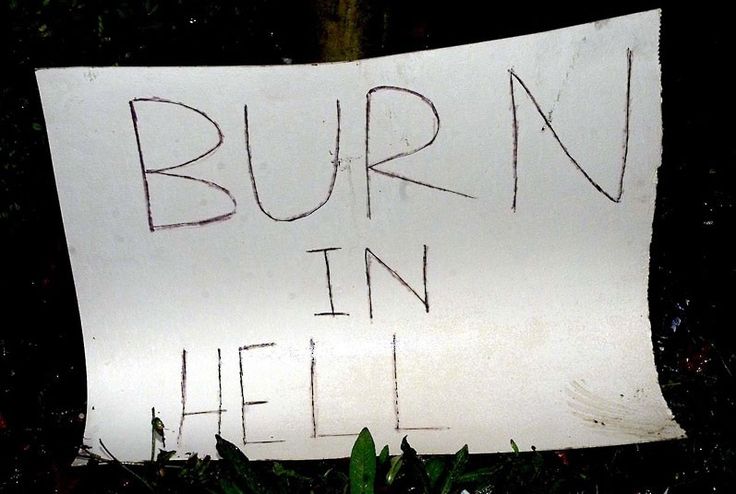 BURN
IN
HELL